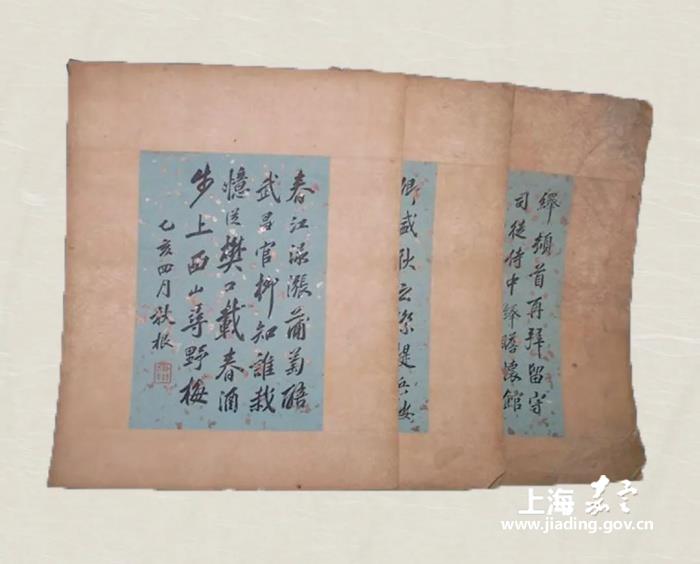 春江渌漲蒲萄醅
武昌官柳知誰栽
憶從樊口載春酒
步上西山尋野梅
乙亥四月
盛
提兵安
繹頓首再拜留守
司徒侍中繹
懷館
上海嘉定
www.jiading.gov.cn